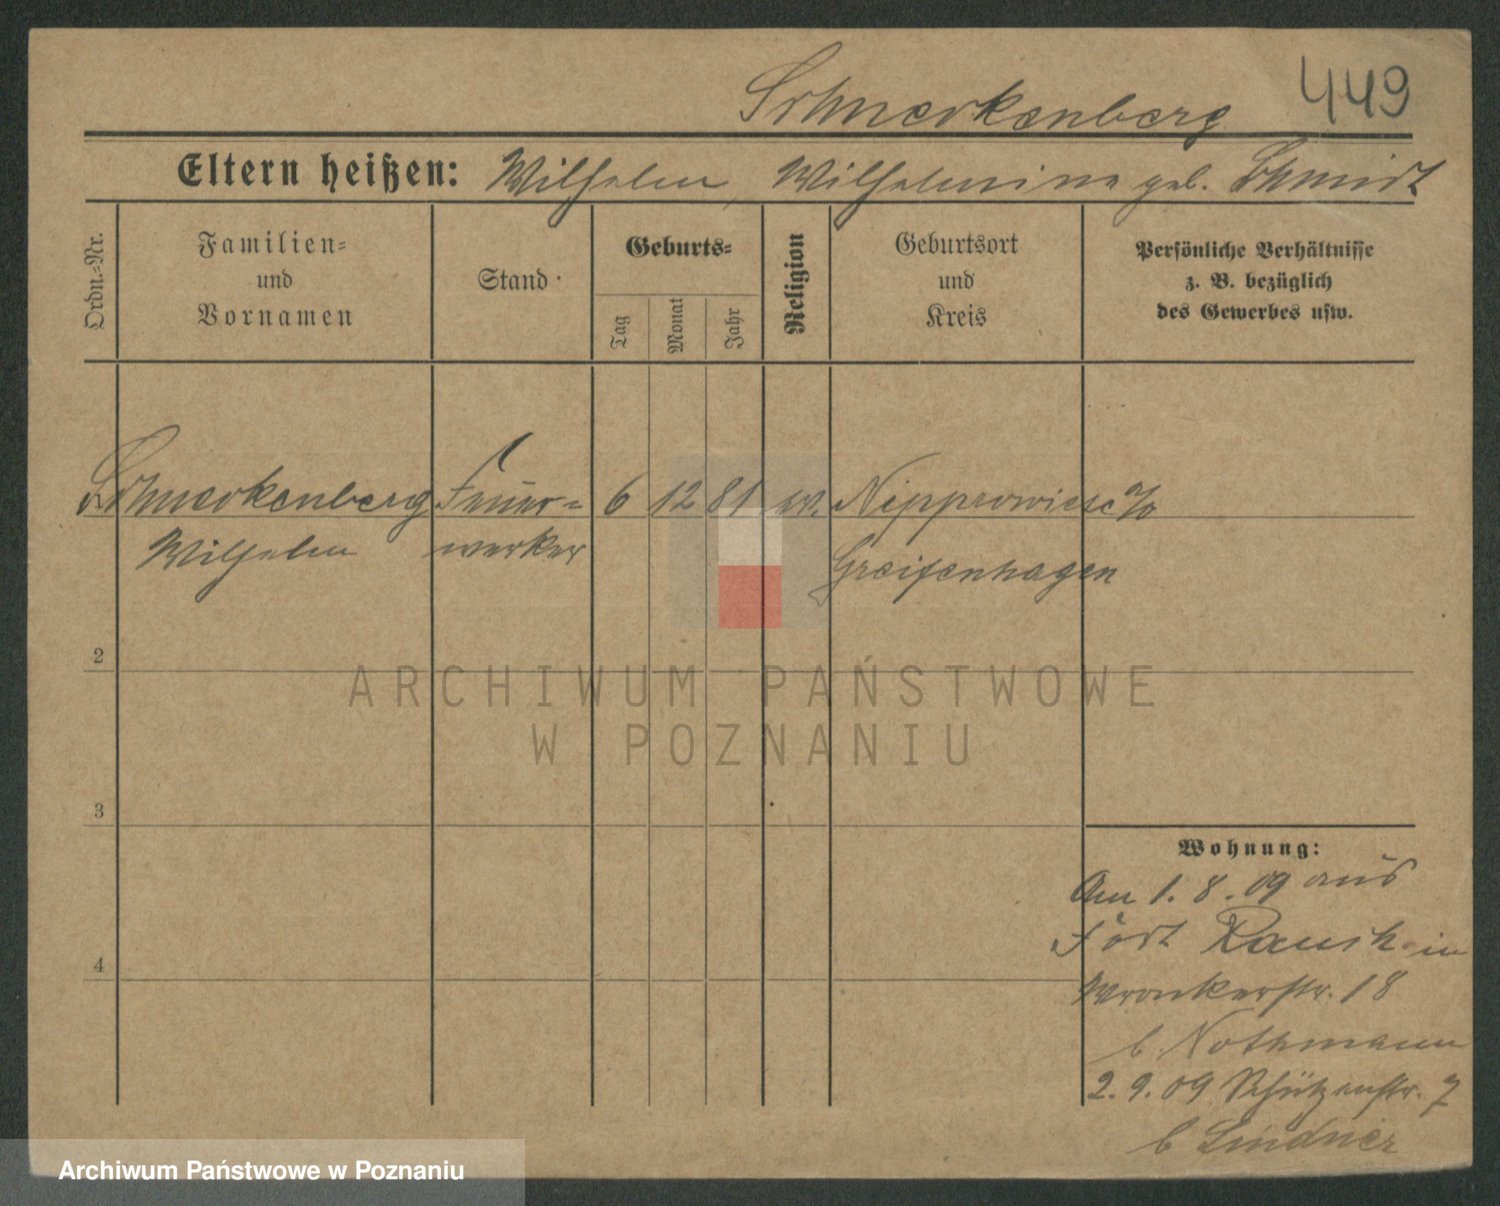 Schneckenberg 449
Eltern heißen: Wilhelm, Wilhelmine geb. Schmidt
Ordn.-Nr.
Familien-
und
Vornamen
Stand
Geburts-
Tag
Monat
Jahr
Religion
Geburtsort
und
Kreis
Persönliche Verhältnisse
z. B. bezüglich
des Gewerbes usw.
Schneckenberg Feuer- 6 12 81 ev. Nipperwiese
Wilhelm werker Greifenhagen
2
ARCHIWUM PAŃSTWOWE
W POZNANIU
3
Wohnung:
Am 1. 8. 09 aus
4 Fort Rauch in
Wronkerstr. 18
b. Nothmann
2. 9. 09 Schützenstr. 7
b Lindner
Archiwum Państwowe w Poznaniu